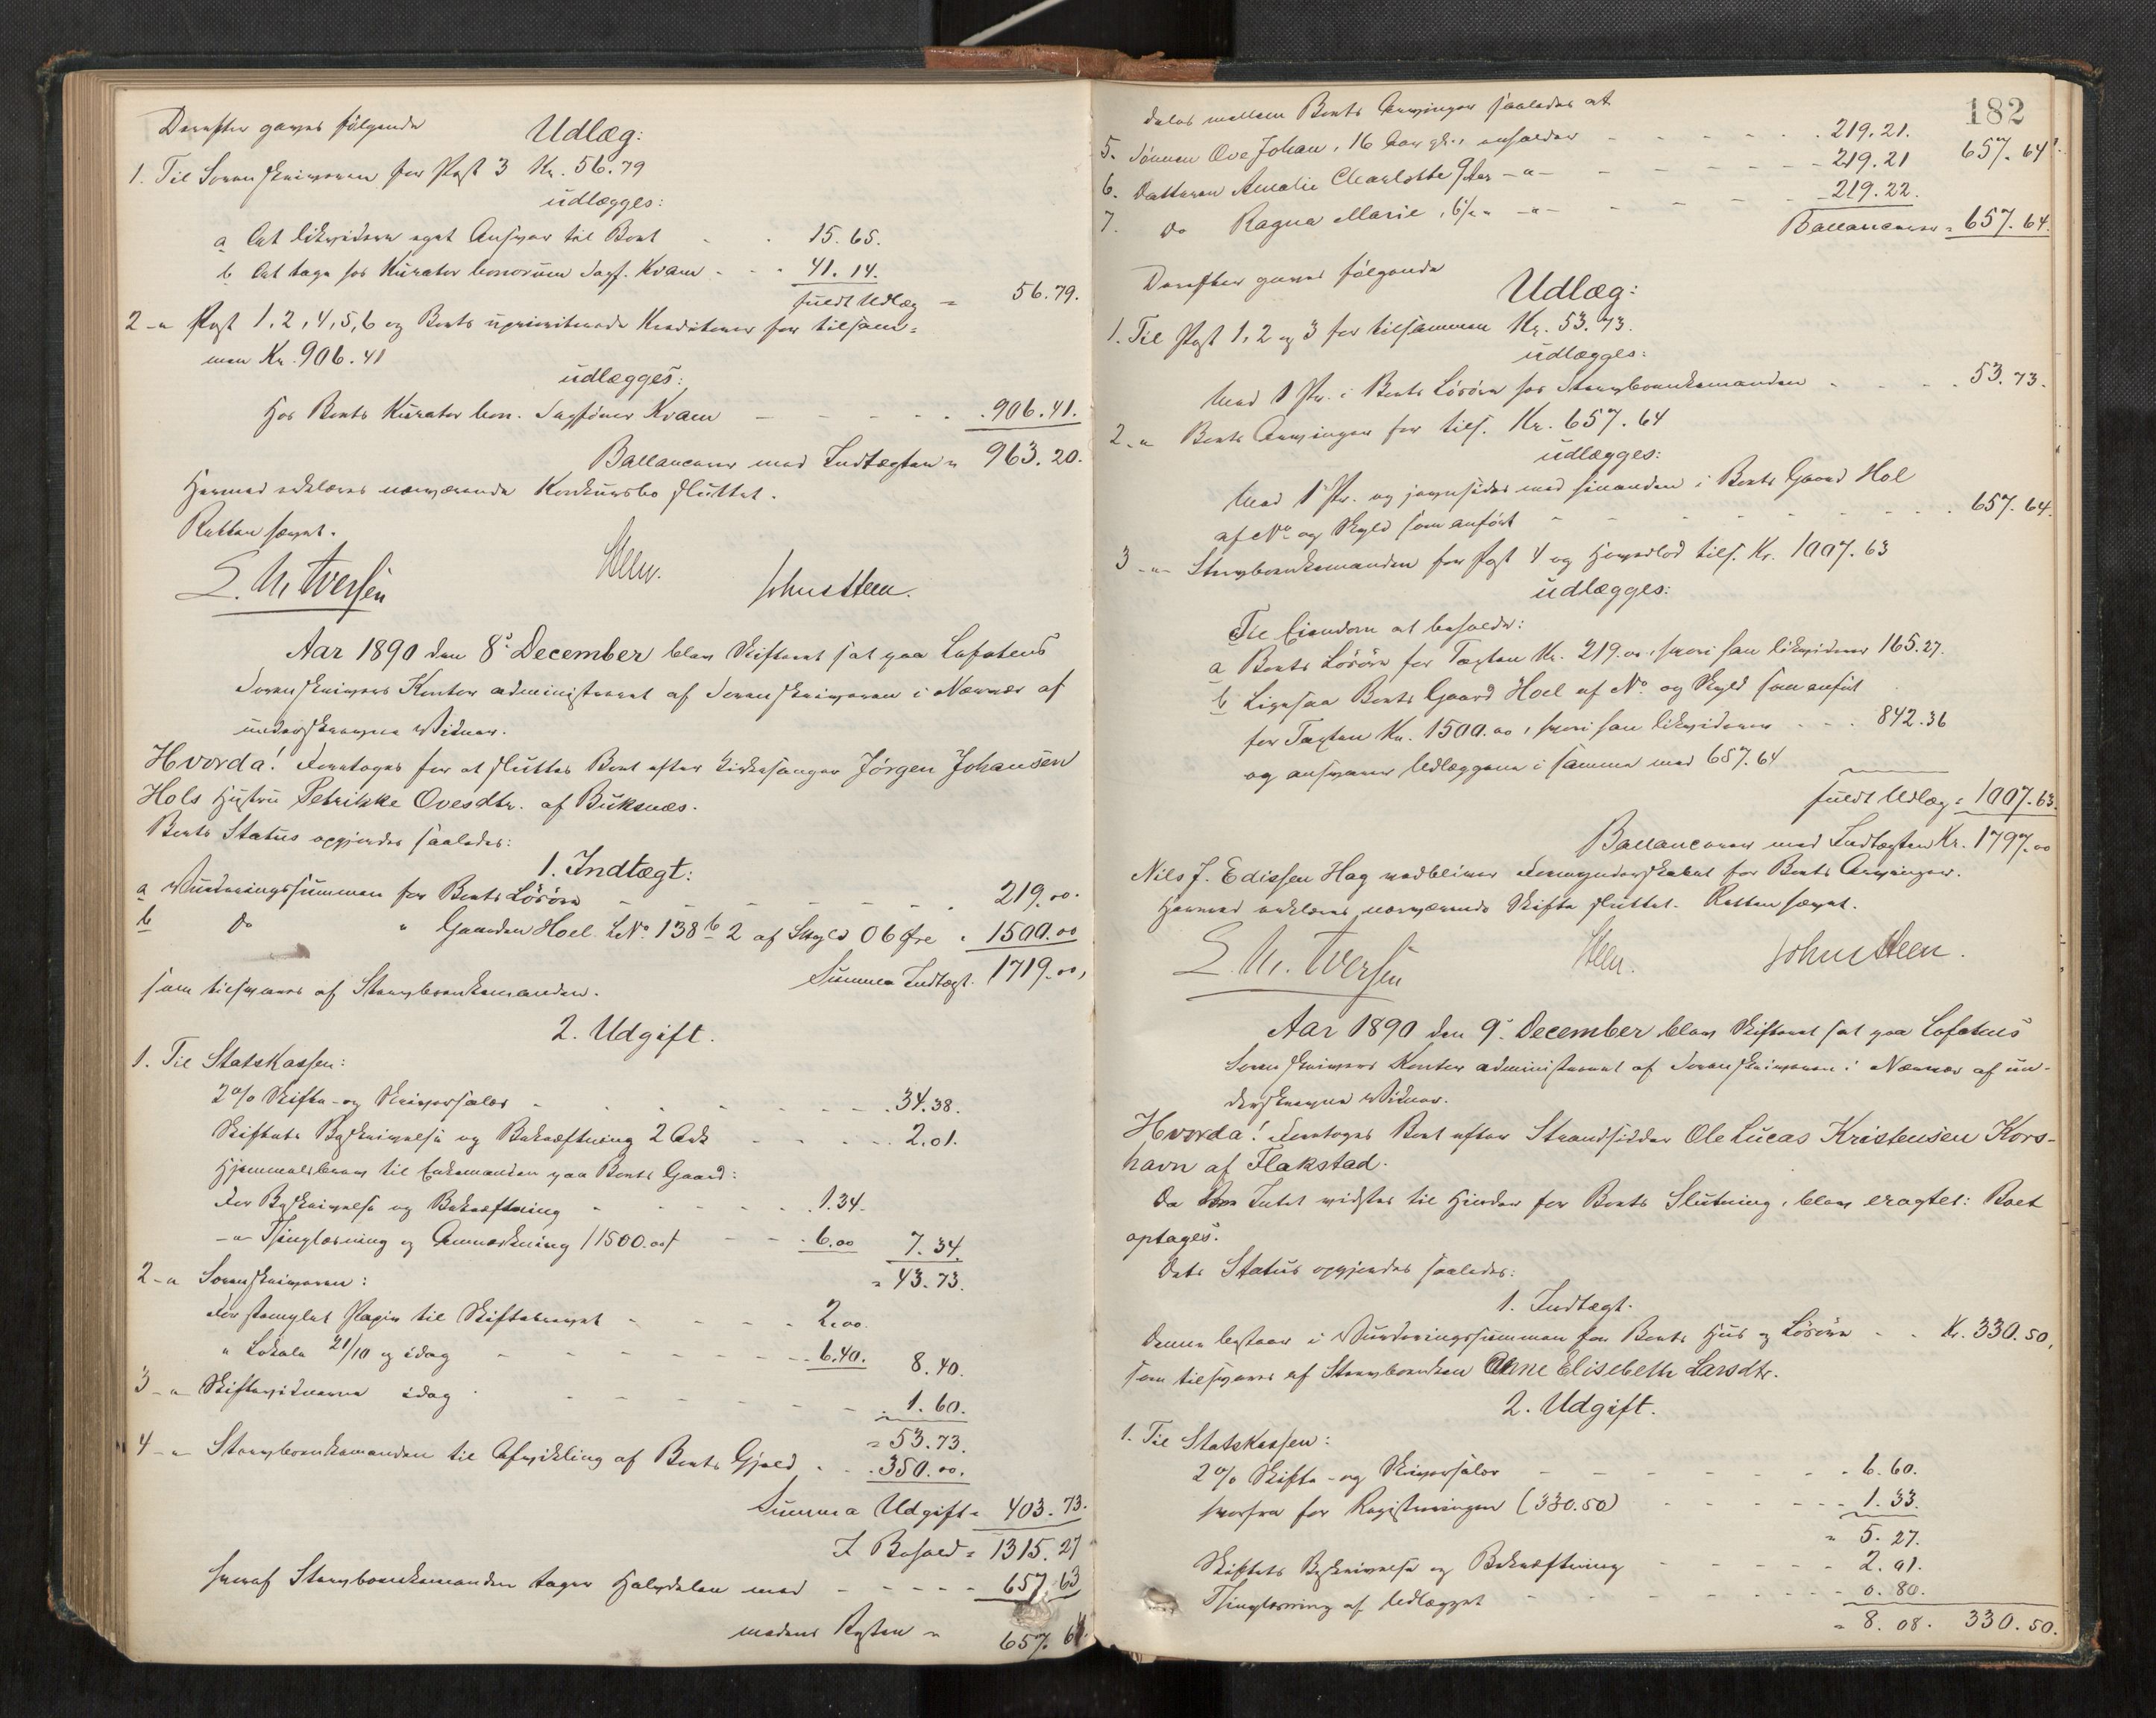 Derefter gaves følgende
Udlæg:
1. Til Sorenskriveren for Post 3 Kr. 56.79
udlægges:
a At likvidere eget Ansvar til Boet - - 15.65.
b At tage hos Kurator bonorum Sagf. Kvam - - - 41.14.
fuldt Udlæg = 56.79.
2 -"- Post 1, 2, 4, 5, 6 og Boets uprioriterede Kreditorer for tilsam=
men Kr. 906.41
udlægges:
Hos Boets Kurator bon. Sagfører Kvam - - - - - 906.41.
Ballancerer med Indtægten = 963.20.
Hermed erklæres nærværende Konkursbo sluttet.
Retten hævet.
E. M. Iversen Steen. Johns Steen.
Aar 1890 den 8de December blev Skifteret sat paa Lofotens
Sorenskrivers Kontor administreret af Sorenskriveren i Nærvær af
underskrevne Vidner.
Hvorda! Foretoges for at sluttes Boet efter Kirkesanger Jørgen Johansen
Hols Hustru Petrikke Ovesdtr. af Buksnæs.
Boets Status opgjordes saaledes:
1. Indtægt:
a Vurderingssummen for Boets Løsøre - - - - - - 219.00.
b Do " Gaarden Hoel LNo 138 b 2 af Skyld 0 6 Øre " 1500.00
Summa Indtægt. 1719.00,
som tilsvares af Stervboenkemanden.
2. Udgift.
1. Til Statskassen:
2% Skifte- og Skriversalær - - - - - - - 34.38.
Skiftets Beskrivelse og Bekræftning 2 Ark - - - - 2.01.
Hjemmelsbrev til Enkemanden paa Boets Gaard:
For Beskrivelse og Bekræftning - - - - - 1.34.
-"- Thinglæsning og Anmærkning (1500.00) - - - 6.00 7.34.
= 43.73.
2 -"- Sorenskriveren:
For stemplet Papir til Skiftebrevet - - - - 2.00.
" Lokale 21/10 og idag - - - - - - - 6.40. 8.40.
3 -"- Skiftevidnerne idag - - - - - - 1.60.
= 53.73.
4 -"- Stervboenkemanden til Afvikling af Boets Gjæld - - 350.00.
Summa Udgift = 403.73.
I Behold = 1315.27
hvoraf Stervboenkemanden tager Halvdelen med - - - - - 657.63
medens Resten = 657.64
182
deles mellem Boets Arvinger saaledes at
657.64
5. Sønnen Ove Johan, 16 Aar gl., erholder - - - - - - 219.21.
6. Datteren Amalie Charlotte 9 Aar -"- - - - - - 219.21
7. Do Ragna Marie, 6½ " -"- - - - - - 219.22.
Ballancerer = 657.64.
Derefter gaves følgende
Udlæg:
1. Til Post 1, 2 og 3 for tilsammen Kr. 53.73.
udlægges:
Med 1 Pr. i Boets Løsøre hos Stervboenkemanden - - - - 53.73.
2 -"- Boets Arvinger for tils. Kr. 657.64
udlægges:
Med 1 Pr. og jevnsides med hinanden i Boets Gaard Hol
af No og Skyld som anført - - - - - - - - 657.64.
3 -"- Stervboenkemanden for Post 4 og Hovedlod tils. Kr. 1007.63
udlægges:
Til Eiendom at beholde:
a Boets Løsøre for Taxten Kr. 219.00, hvori han likviderer 165.27.
b Ligesaa Boets Gaard Hoel af No og Skyld som anført
for Taxten Kr. 1500.00, hvori han likviderer - - - 842.36
og ansvarer Udlæggene i samme med 657.64
fuldt Udlæg = 1007.63.
Ballancerer med Indtægten Kr. 1797.00
Nils J. Edissen Hag vedbliver Formynderskabet for Boets Arvinger.
Hermed erklæres nærværende Skifte sluttet. Retten hævet.
E. M. Iversen Steen. Johns Steen.
Aar 1890 den 9de December blev Skifteret sat paa Lofotens
Sorenskrivers Kontor administreret af Sorenskriveren i Nærvær af un-
derskrevne Vidner.
Hvorda! Foretoges Boet efter Strandsidder Ole Lucas Kristensen Kors-
havn af Flakstad.
Da Intet vidstes til Hinder for Boets Slutning, blev eragtet: Boet
optages.
Dets Status opgjordes saaledes:
1. Indtægt.
Denne bestaar i Vurderingssummen for Boets Hus og Løsøre - - Kr. 330.50,
som tilsvares af Stervboenken Anne Elisebeth Larsdtr.
2. Udgift.
1. Til Statskassen:
2% Skifte- og Skriversalær - - - - - - - - 6.60.
herfra for Registreringen (330.50) - - - - - - 1.33.
= 5.27.
Skiftets Beskrivelse og Bekræftning - - - - - 2.01.
Thinglæsning af Udlægget - - - - - - - - 0.80.
= 8.08. 330.50.